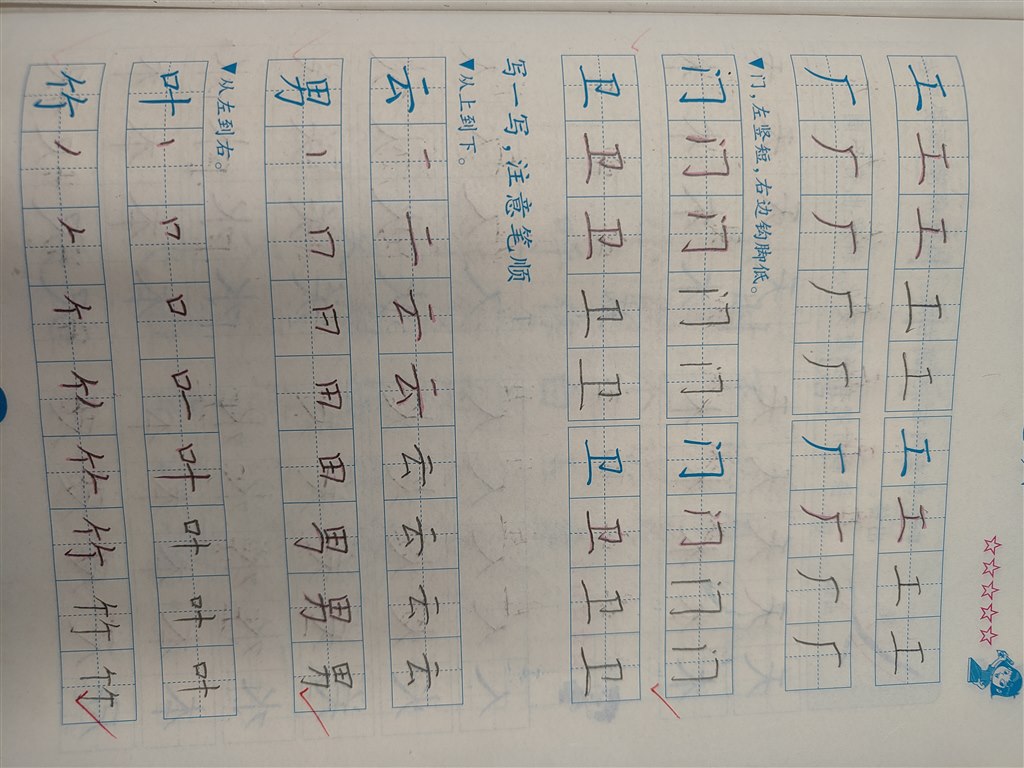 工 工 工 工 工 工 工 工 工
厂 厂 厂 厂 厂 厂 厂 厂 厂
▼门，左竖短，右边钩脚低。
门 门 门 门 门 门 门 门 门
卫 卫 卫 卫 卫 卫 卫 卫 卫
写一写，注意笔顺
▼从上到下。
云 一 二 云 云 云 云 云 云
男 丨 冂 日 田 男 男 男
▼从左到右。
叶 丨 冂 口 叶 叶 叶 叶
竹 丿 𠂉 竹 竹 竹 竹